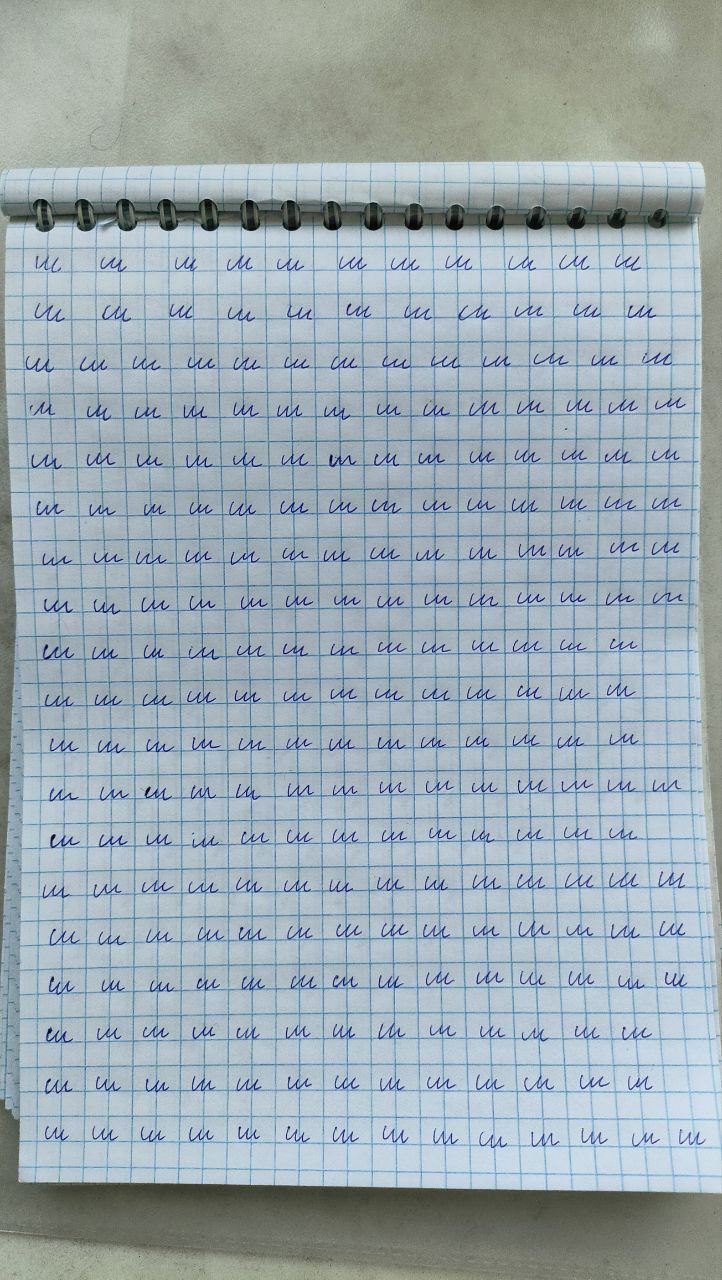 ш ш ш ш ш ш ш ш ш ш ш
ш ш ш ш ш ш ш ш ш ш ш
ш ш ш ш ш ш ш ш ш ш ш ш ш
ш ш ш ш ш ш ш ш ш ш ш ш ш ш
ш ш ш ш ш ш ш ш ш ш ш ш ш ш
ш ш ш ш ш ш ш ш ш ш ш ш ш ш
ш ш ш ш ш ш ш ш ш ш ш ш ш ш
ш ш ш ш ш ш ш ш ш ш ш ш ш ш
ш ш ш ш ш ш ш ш ш ш ш ш ш
ш ш ш ш ш ш ш ш ш ш ш ш ш
ш ш ш ш ш ш ш ш ш ш ш ш ш
ш ш ш ш ш ш ш ш ш ш ш ш ш ш
ш ш ш ш ш ш ш ш ш ш ш ш ш
ш ш ш ш ш ш ш ш ш ш ш ш ш ш
ш ш ш ш ш ш ш ш ш ш ш ш ш ш
ш ш ш ш ш ш ш ш ш ш ш ш ш ш
ш ш ш ш ш ш ш ш ш ш ш ш ш
ш ш ш ш ш ш ш ш ш ш ш ш ш
ш ш ш ш ш ш ш ш ш ш ш ш ш ш